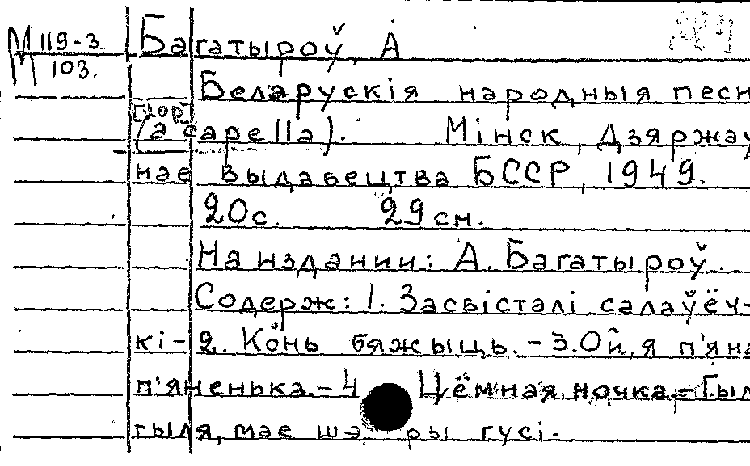 М 119-3
М 103.
Багатыроў, А
Беларускія народныя песн
хор
(a capella). Мінск, Дзяржаў
нае выдавецтва БССР, 1949.
20с. 29см.
На издании: А. Багатыроў.
Содерж: 1. Засвісталі салаўёч-
кі.-2. Конь бяжыць.-3. Ой, я п'яна
п'яненька.-4. Цёмная ночка.- Гыл
гыля, мае шэ ры гусі.-